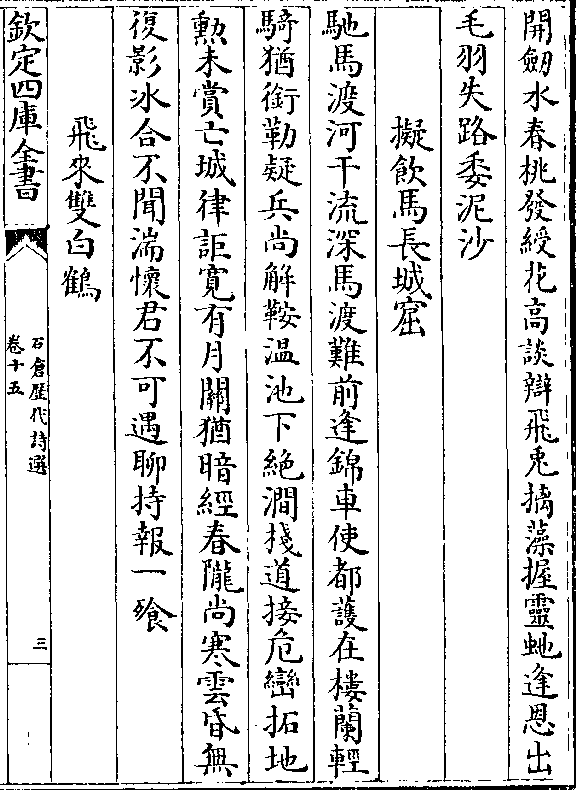 開劒水春桃發綬花高談辯飛兎摛藻握靈虵逢恩出
毛羽失路委泥沙
擬飲馬長城窟
馳馬渡河干流深馬渡難前逢錦車使都護在樓蘭輕
騎猶銜勒疑兵尚解鞍温池下絶澗棧道接危巒拓地
勲未賞亡城律詎寛有月闗猶暗經春隴尚寒雲昏無
復影冰合不聞湍懷君不可遇聊持報一飱
飛來雙白鶴
欽定四庫全書
石倉歴代詩選
卷十五
三